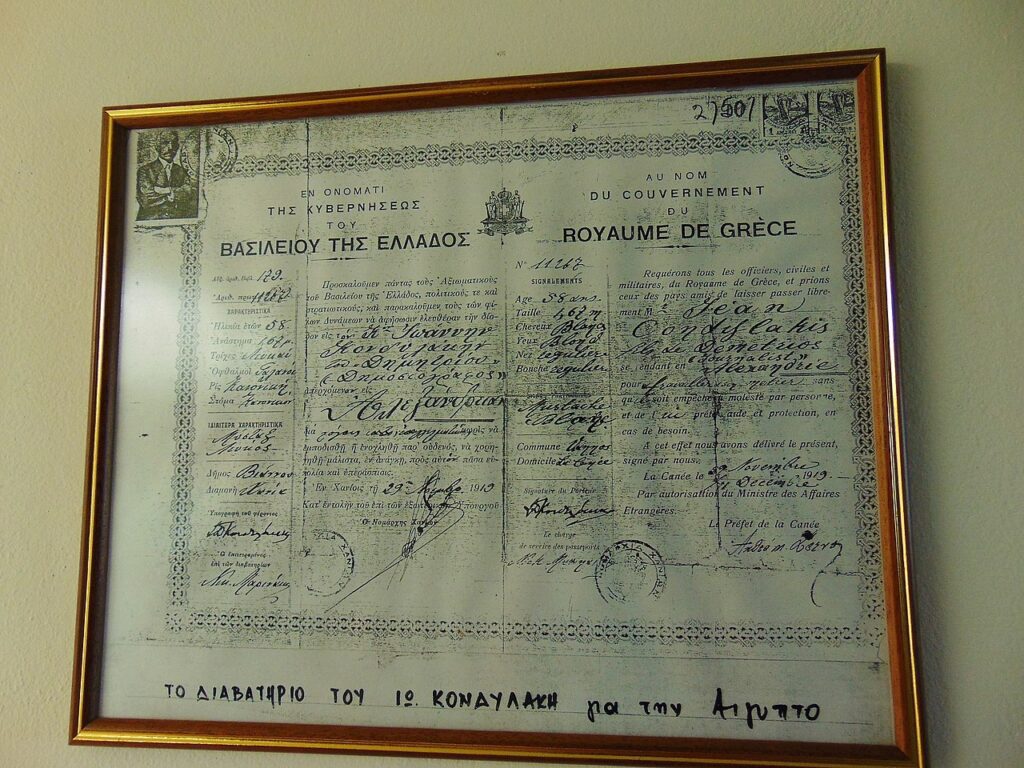 27501
ΕΝ ΟΝΟΜΑΤΙ
ΤΗΣ ΚΥΒΕΡΝΗΣΕΩΣ
ΤΟΥ
ΒΑΣΙΛΕΙΟΥ ΤΗΣ ΕΛΛΑΔΟΣ
179.
11267
ΧΑΡΑΚΤΗΡΙΣΤΙΚΑ
Ἡλικία ἐτῶν 58.
Ἀνάστημα 1,67μ.
Τρίχες
Ὀφθαλμοὶ
Ρὶς Κανονική
Στόμα
ΙΔΙΑΙΤΕΡΑ ΧΑΡΑΚΤΗΡΙΣΤΙΚΑ
Δῆμος Βιάννου
Διαμονὴ
Ὑπογραφὴ τοῦ φέροντος
Ὁ ἐπιτετραμμένος
ἐπὶ τῶν διαβατηρίων
Προσκαλοῦμεν πάντας τοὺς Ἀξιωματικοὺς
τοῦ Βασιλείου τῆς Ἑλλάδος, πολιτικούς τε καὶ
στρατιωτικούς, καὶ παρακαλοῦμεν τοὺς τῶν φί-
λων Δυνάμεων νὰ ἀφήσωσιν ἐλευθέραν τὴν δίο-
δον εἰς τὸν Κον Ἰωάννην
Κονδυλάκην
Δημητρίου
«Δημοσιογράφος»
ἀπερχόμενον εἰς
Ἀλεξάνδρειαν
χωρὶς νὰ
ἐμποδισθῇ ἢ ἐνοχληθῇ παρ' οὐδενός, νὰ χορη-
γηθῇ μάλιστα, ἐν ἀνάγκῃ, πρὸς αὐτὸν πᾶσα εὐ-
κολία καὶ ὑπεράσπισις.
Ἐν Χανίοις τῇ 29 Νοεμβρ. 1919
Κατ' ἐντολὴν τοῦ ἐπὶ τῶν ἐξωτερικῶν Ὑπουργοῦ
Ὁ Νομάρχης Χανίων
AU NOM
DU GOUVERNEMENT
DU
ROYAUME DE GRÈCE
N° 11267
SIGNALEMENTS
Age 58 ans.
Taille 1,67 m
Cheveux Blancs
Yeux Blond
Nez regulier
Bouche regulier
Mustache
Blanc
Commune
Domicile
Signature du Porteur
Le chargé
de service des passeports
Requérons tous les officiers, civiles et
militaires, du Royaume de Grèce, et prions
ceux des pays amis de laisser passer libre-
ment Mr Jean
Condylakis
fils de Demetrios
(Journaliste)
se rendant en Alexandrie
pour sans
qu'il soit empêché ni molesté par personne,
et de lui prêter aide et protection, en
cas de besoin.
A cet effet nous avons délivré le présent,
signé par nous.
La Canée 29 Novembre 1919
Décembre
Par autorisation du Ministre des Affaires
Etrangères.
Le Préfet de la Canée
ΤΟ ΔΙΑΒΑΤΗΡΙΟ ΤΟΥ ΙΩ. ΚΟΝΔΥΛΑΚΗ για την Αιγυπτο